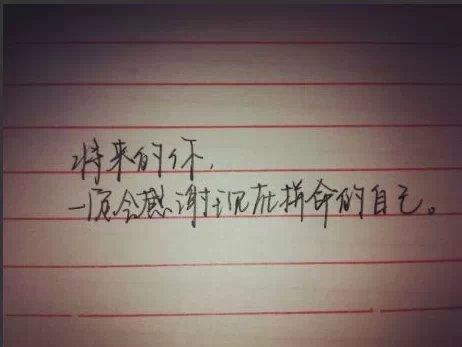 将来的你，
一定会感谢现在拼命的自己。